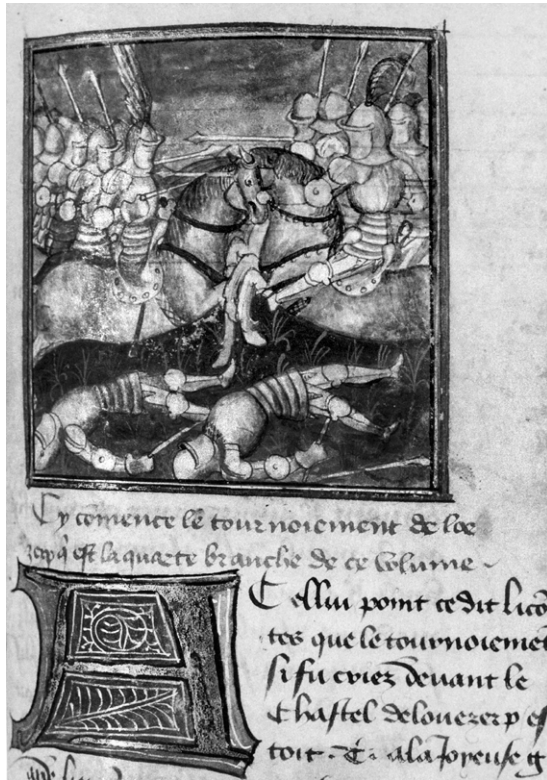 Cy cōmence le tournoiement de loe
zerp q̄ est la quarte branche de ce volume
A
Cellui point ce dit li cō
tes que le tournoiemēt
si fu criez devant le
Chastel de louezerp es
toit . T . a la Joyeuse g